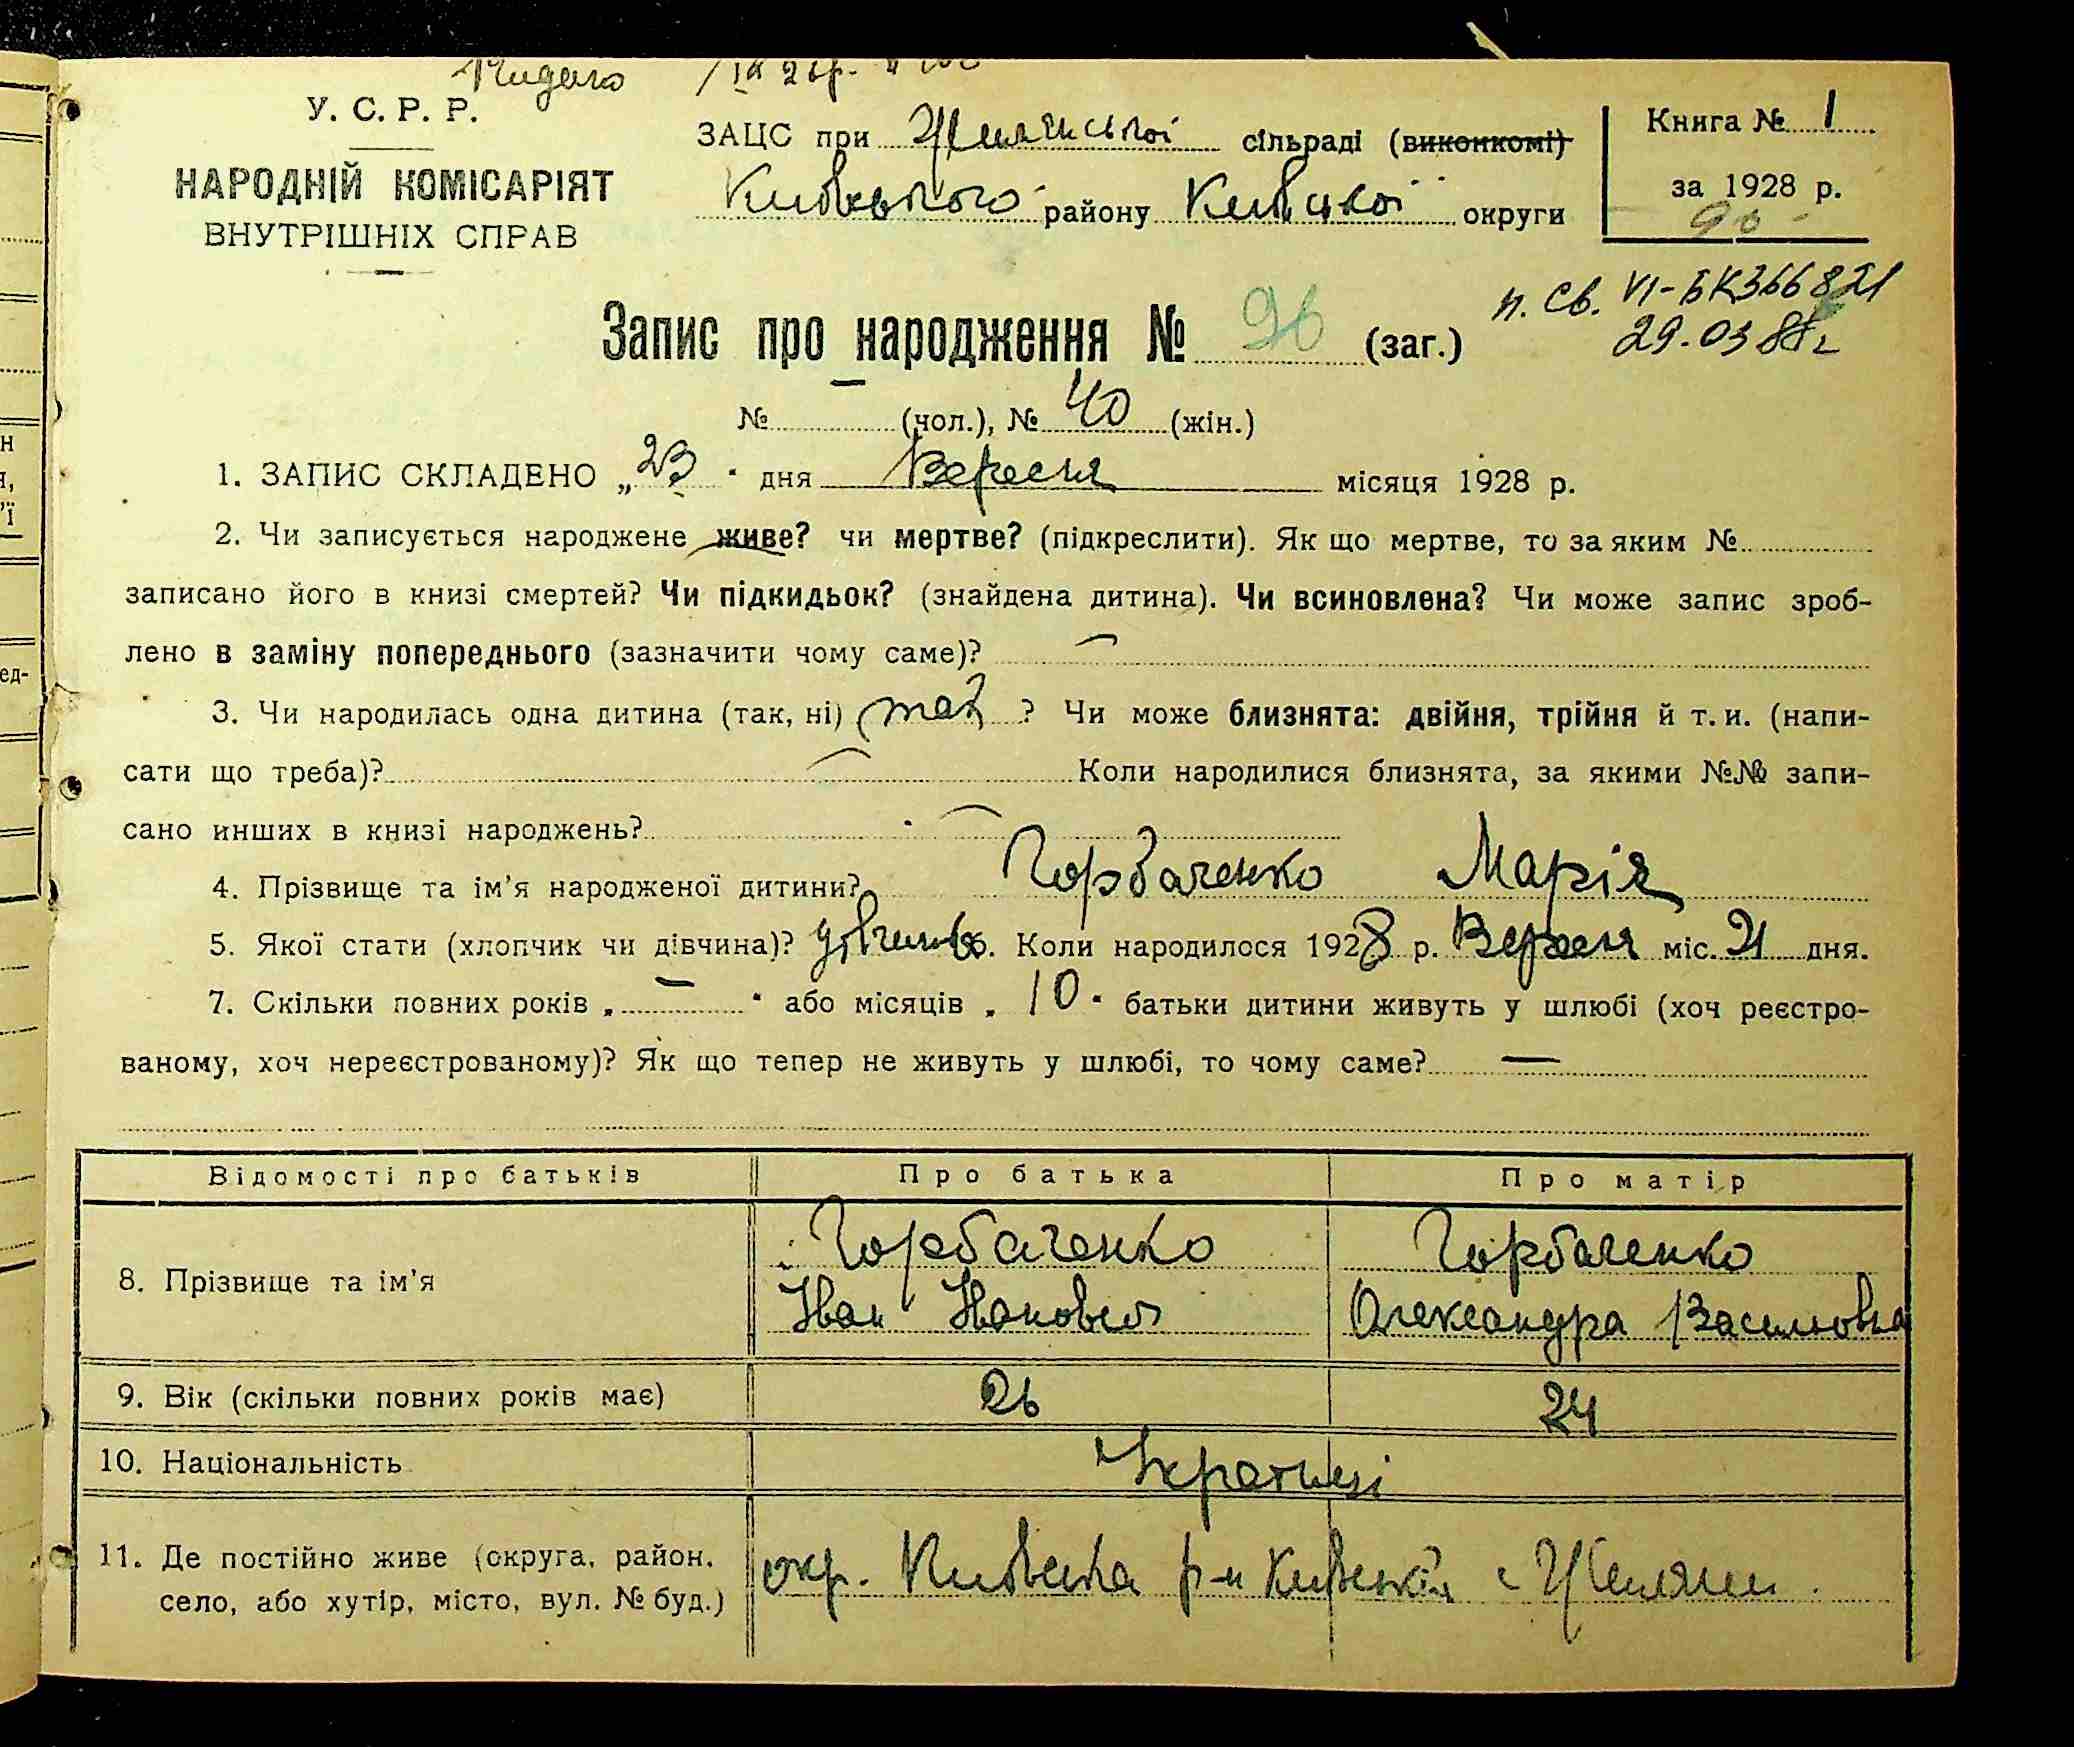 Видано
У. С. Р. Р.
НАРОДНІЙ КОМІСАРІЯТ
ВНУТРІШНІХ СПРАВ
ЗАЦС при Жилянській сільраді (виконкомі)
Київського району Київської округи
Книга № 1
за 1928 р.
90
п. св. VI-БК366821
29.03 88г
Запис про народження № 90 (заг.)
№ — (чол.), № 40 (жін.)
1. ЗАПИС СКЛАДЕНО „23" дня Вересня місяця 1928 р.
2. Чи записується народжене живе? чи мертве? (підкреслити). Як що мертве, то за яким №
записано його в книзі смертей? Чи підкидьок? (знайдена дитина). Чи всиновлена? Чи може запис зроб-
лено в заміну попереднього (зазначити чому саме)? —
3. Чи народилась одна дитина (так, ні) так ? Чи може близнята: двійня, трійня й т. и. (напи-
сати що треба)? — Коли народилися близнята, за якими №№ запи-
сано инших в книзі народжень? —
4. Прізвище та ім'я народженої дитини? Горбаченко Марія
5. Якої стати (хлопчик чи дівчина)? дівчинка. Коли народилося 1928 р. Вересня міс. 21 дня.
7. Скільки повних років „ — " або місяців „ 10 " батьки дитини живуть у шлюбі (хоч реєстро-
ваному, хоч нереєстрованому)? Як що тепер не живуть у шлюбі, то чому саме? —
Відомості про батьків Про батька Про матір
8. Прізвище та ім'я Горбаченко Іван Іванович Горбаченко Олександра Василівна
9. Вік (скільки повних років має) 26 24
10. Національність Українці
11. Де постійно живе (округа, район,
село, або хутір, місто, вул. № буд.) окр. Київська р-н Київській с Жиляни.